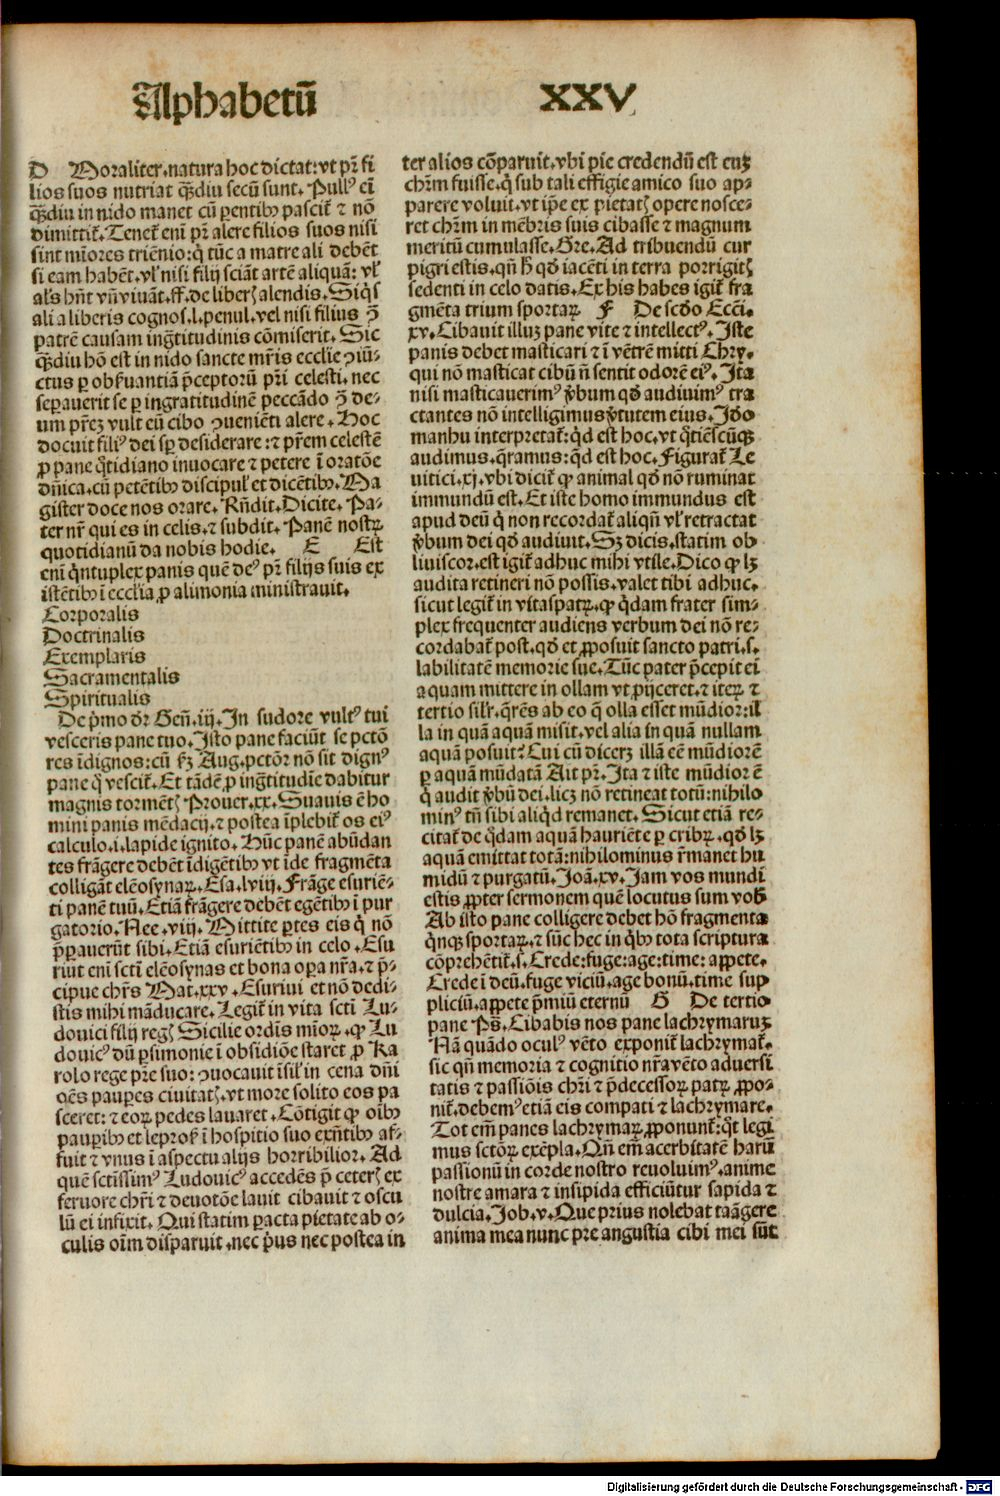 Alphabetū XXV
D Moraliter.natura hoc dictat:vt pr̄ fi
lios suos nutriat q̄ʒdiu secū sunt. Pullꝰ em̄
q̄ʒdiu in nido manet cū ꝑentibꝰ pascit̄ ⁊ nō
dimittit̄. Tenet̄ em̄ pr̄ alere filios suos nisi
sint mīores triēnio:q̄ tūc a matre ali debēt
si eam habēt.vl̓ nisi filij sciāt artē aliquā: vl̓
al̓s hn̄t vn̄ viuāt.ff.de liberꝭ alendis. Siq̄s
ali a liberis cognos.l.penul.vel nisi filius ꝯ̄
patrē causam ingr̄titudinis cōmiserit. Sic
q̄ʒdiu hō est in nido sancte mr̄is ecclie ꝯiū-
ctus ꝑ obẜuantiā p̄ceptorū pr̄i celesti. nec
seꝑauerit se ꝑ ingratitudinē peccādo ꝯ̄ de-
um pr̄eꝫ vult eū cibo ꝯueniēti alere. Hoc
docuit filiꝰ dei sꝑ desiderare:⁊ pr̄em celestē
ꝓ pane q̄tidiano inuocare ⁊ petere ī oratōe
dn̄ica.cū petētibꝰ discipul̓ et dicētibꝰ. Ma
gister doce nos orare. Rn̄dit. Dicite. Pa-
ter nr̄ qui es in celis.⁊ subdit. Panē nostꝝ
quotidianū da nobis hodie. E Est
em̄ q̄ntuplex panis quē deꝰ pr̄ filijs suis ex
istētibꝰ ī ecclīa ꝓ alimonia ministrauit.
Corporalis
Doctrinalis
Exemplaris
Sacramentalis
Spiritualis
De p̄mo dr̄ Gen̄.iij. In sudore vultꝰ tui
vesceris pane tuo. Isto pane faciūt se pctō
res īdignos:cū ẜꝫ Aug.pctōr nō sit dignꝰ
pane q̄ vescit̄. Et tādē ꝓ ingr̄titudīe dabitur
magnis tormētꝭ Prouer.xx. Suauis ē ho
mini panis mēdacij.⁊ postea īplebit̄ os eiꝰ
calculo.i.lapide ignito. Hūc panē abūdan
tes frāgere debēt īdigētibꝰ vt īde fragmēta
colligāt elēosynaꝝ. Esa.lviij. Frāge esuriē-
ti panē tuū. Etiā frāgere debēt egētibꝰ ī pur
gatorio. Nee.viij. Mittite ꝑtes eis q̄ nō
p̄ꝑauerūt sibi. Etiā esuriētibꝰ in celo. Esu
riut em̄ sctī elēosynas et bona oꝑa nr̄a.⁊ p̄-
cipue chr̄s Mat.xxv. Esuriui et nō dedi-
stis mihi māducare. Legit̄ in vita sctī Lu-
douici filij regꝭ Sicilie ordīs mīoꝝ. ꝙ Lu
douicꝰ dū ꝑsimonie ī obsidiōe staret ꝓ Ka
rolo rege pr̄e suo: ꝯuocauit īsil̓ in cena dn̄i
oēs pauꝑes ciuitatꝭ.vt more solito eos pa
sceret: ⁊ eoꝝ pedes lauaret. Cōtigit ꝙ oībꝰ
pauꝑibꝰ et leprosꝭ ī hospitio suo exn̄tibꝰ af-
fuit ⁊ vnus ī aspectu alijs horribilior. Ad
quē sctīssimꝰ Ludouicꝰ accedēs p̄ ceterꝭ ex
feruore chr̄i ⁊ deuotōe lauit cibauit ⁊ oscu
lū ei infixit. Qui statim ꝑacta pietate ab o-
culis oīm disparuit.nec p̄us nec postea in
ter alios cōparuit.vbi pie credendū est euꝫ
chr̄m fuisse.q̄ sub tali effigie amico suo ap-
parere voluit.vt ip̄e ex pietatꝭ opere nosce-
ret chr̄m in mēbris suis cibasse ⁊ magnum
meritū cumulasse. Gre. Ad tribuendū cur
pigri estis.qn̄ h̄ qd̓ iacēti in terra porrigitꝭ
sedenti in celo datis. Ex his habes igit̄ fra
gmēta trium sportaꝝ F De scd̓o Ecci.
xv. Cibauit illuꝫ pane vite ⁊ intellectꝰ. Iste
panis debet masticari ⁊ ī vētrē mitti Chry.
qui nō masticat cibū n̄ sentit odorē eiꝰ. Ita
nisi masticauerimꝰ v̓bum qd̓ audiuimꝰ tra
ctantes nō intelligimus v̓tutem eius. Id̓o
manhu interpretat̄:qd̓ est hoc.vt q̄tiēscūqꝫ
audimus.q̄ramus:qd̓ est hoc. Figurat̄ Le
uitici.xj.vbi dicit̄ ꝙ animal qd̓ nō ruminat
immundū est. Et iste homo immundus est
apud deū q̄ non recordat̄ aliqn̄ vl̓ retractat
v̓bum dei qd̓ audiuit. Sꝫ dicis.statim ob
liuiscor.est igit̄ adhuc mihi vtile. Dico ꝙ lꝫ
audita retineri nō possis.valet tibi adhuc.
sicut legit̄ in vitaspatꝝ.ꝙ q̄dam frater sim-
plex frequenter audiens verbum dei nō re-
cordabat̄ post.qd̓ et ꝓposuit sancto patri.s.
labilitatē memorie sue. Tūc pater p̄cepit ei
aquam mittere in ollam vt ꝓijceret.⁊ iteꝝ ⁊
tertio silr̄.q̄rēs ab eo q̄ olla esset mūdior:il
la in quā aquam misit.vel alia in quā nullam
aquā posuit? Cui cū dicerꝫ illā eē mūdiorē
ꝑ aquā mūdatā Ait pr̄. Ita ⁊ iste mūdior ē
q̄ audit v̓bū dei.licꝫ nō retineat totū:nihilo
minꝰ tn̄ sibi aliqd̓ remanet. Sicut etiā re-
citat̄ de q̄dam aquā hauriēte ꝑ cribꝝ.qd̓ lꝫ
aquā emittat totā:nihilominus r̄manet hu
midū ⁊ purgatū. Joā.xv. Jam vos mundi
estis ꝓpter sermonem quē locutus sum vob̄
Ab isto pane colligere debet hō fragmenta
q̄nqꝫ sportaꝝ.⁊ sūt hec in q̄bꝰ tota scriptura
cōprehētit̄.s. Crede:fuge:age:time: appete.
Crede ī deū.fuge viciū.age bonū.time sup
pliciū.appete p̄miū eternū G De tertio
pane Ps̄. Cibabis nos pane lachrymaruꝫ
Nā quādo oculꝰ vēto exponit̄ lachrymat̄.
sic qn̄ memoria ⁊ cognitio nr̄a vēto aduersi
tatis ⁊ passiōis chr̄i ⁊ p̄decessoꝝ patꝝ ꝓpo-
nit̄.debemꝰ etiā eis compati ⁊ lachrymare.
Tot em̄ panes lachrymaꝝ ꝓponunt̄:q̄t legi
mus sctōꝝ exēpla. Qn̄ em̄ acerbitatē harū
passionū in corde nostro reuoluimꝰ.anime
nostre amara ⁊ insipida efficiūtur sapida ⁊
dulcia. Job.v. Que prius nolebat taāgere
anima mea nunc pre angustia cibi mei sūt
Digitalisierung gefördert durch die Deutsche Forschungsgemeinschaft - DFG